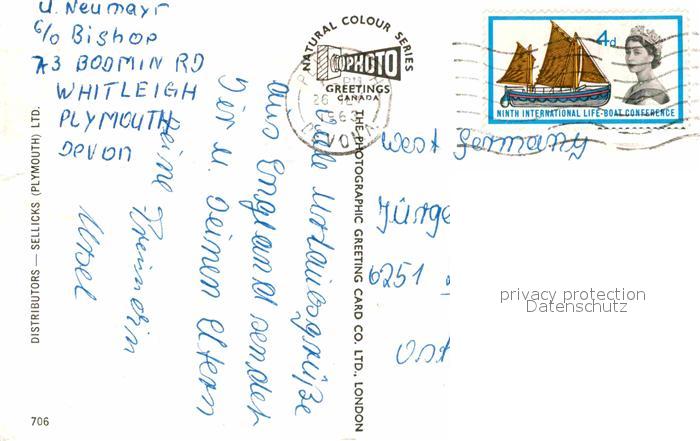 U. Neumayr
c/o Bishop
73 BODMIN RD
WHITLEIGH
PLYMOUTH
DEVON
Viele Urlaubsgrüße
aus England sendet
Dir u. Deinen Eltern
Deine Freundin
Ursel
NATURAL COLOUR SERIES
PHOTO
GREETINGS
CANADA
4d
NINTH INTERNATIONAL LIFE-BOAT CONFERENCE
West Germany
Jürge
6251
privacy protection
Datenschutz
DISTRIBUTORS — SELLICKS (PLYMOUTH) LTD.
THE PHOTOGRAPHIC GREETING CARD CO. LTD., LONDON
706